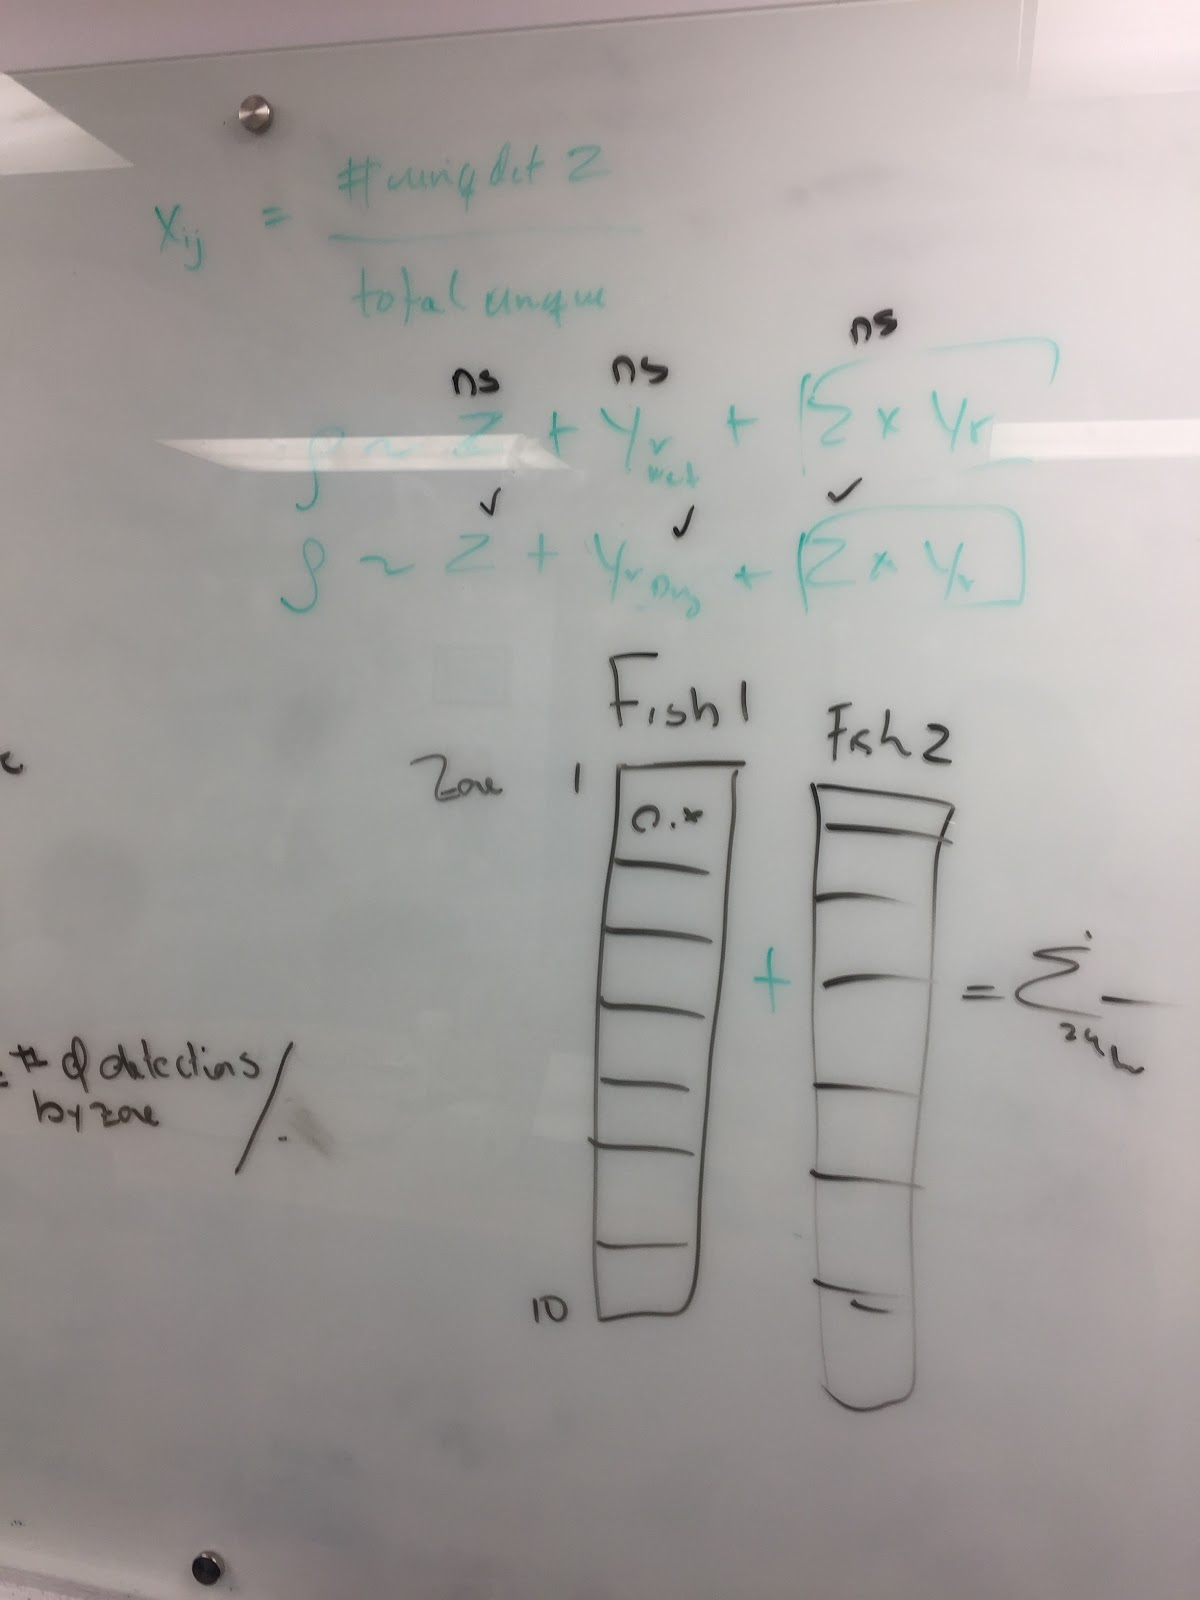 Xij = # uniq det Z
total unique
ns ns ns
ρ ~ Z + Yr wet + [Z x Yr
✓ ✓ ✓
ρ ~ Z + Yr Dry + [Z x Yr]
Fish 1 Fish 2
Zone 1
0.*
+ = Σ —
= # of detections /
by zone
10